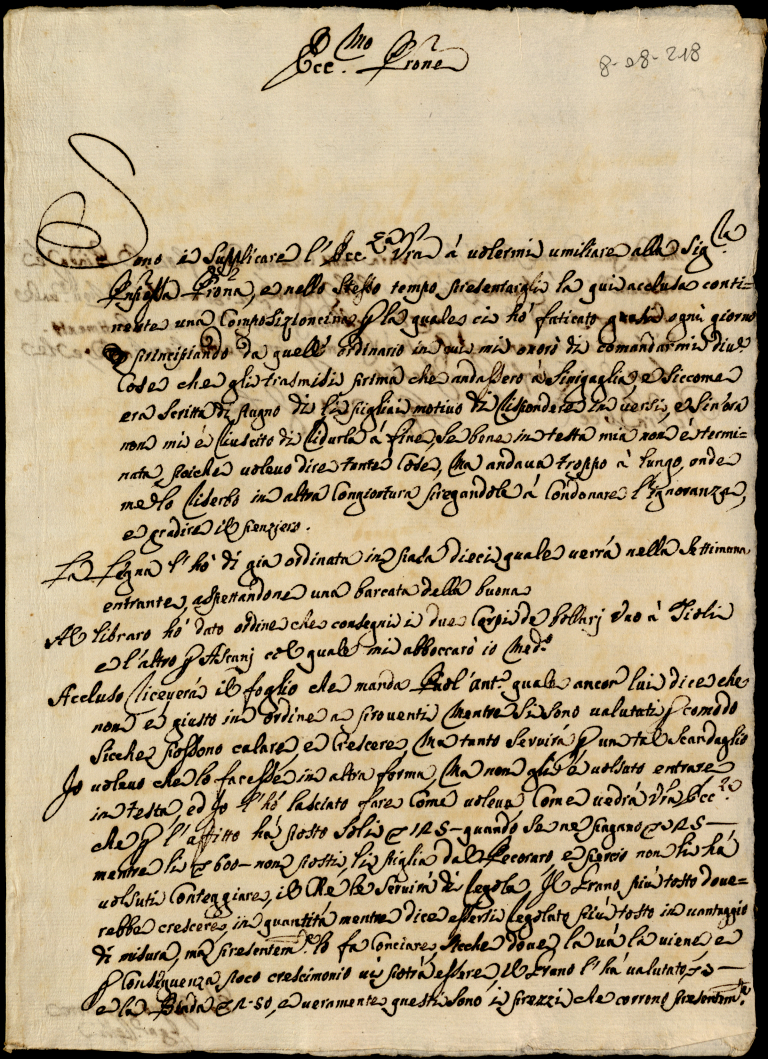 Ecc.mo Prone
8-28-218
Sono à Supplicare l'Ecc.za Vra à volermi umiliare alla Sig.la
Pnpessa Prona, e nello stesso tempo presentargli la qui acclusa conti=
nente una Composizioncina p la quale ci hò faticato quasi ogni giorno
principiando da quell' ordinario in cui mi onorò di comandarmi div.e
Cose che gli trasmisi prima che andassero à Sinigaglia, e Siccome
era Scritta di pugno di li pigliai motivo di Rispondere in versi, e Sin'ora
non mi è Riuscito di Ridurla à fine, Se bene in testa mia non è termi=
nata, poiche volevo dire tante Cose, Ma andava troppo à lungo, onde
me lo Riserbo in altra Congiontura pregandola à Condonare l'Ignoranza,
e gradire il pensiero.
La Legna l'hò di già ordinata in passa dieci quale verrà nella Settimana
entrante, aspettandone una barcata della buona
Al libraro hò dato ordine che consegni i due Corpi de bollarj Uno à Tioli
e l'altro p Ascanj col quale mi abboccarò io Med.o
Accluso Riceverà il foglio che manda ant.o quale ancor lui dice che
non è giusto in ordine a proventi Mentre Si Sono valutati p comodo
Sicche possono calare, e Crescere, Ma tanto Servirà p un tal Scandaglio
Io volevo che lo facesse in altra forma, Ma non gli è volsuto entrare
in testa ed Io l'hò lasciato fare Come voleva Come vedrà Vra Ecc.za
che p l'affitto hà posto Soli 125- quando Se ne pagano 225-
mentre li 600- non posti, li piglia dal Pecoraro, e perciò non li hà
volsuti Conteggiare, il che le Servirà di Regola, Il Grano più tosto dove=
rebbe crescere in quantità mentre dice essersi Regolato più tosto in vantaggio
di misura, mà presentem.te lo fa Conciare, Sicche dove la và la viene e
p Conseguenza poco crescimonio vi potrà essere, il Grano l'hà valutato
e la Biada 2-50, e veramente questi Sono i prezzi che corrono presentem.te